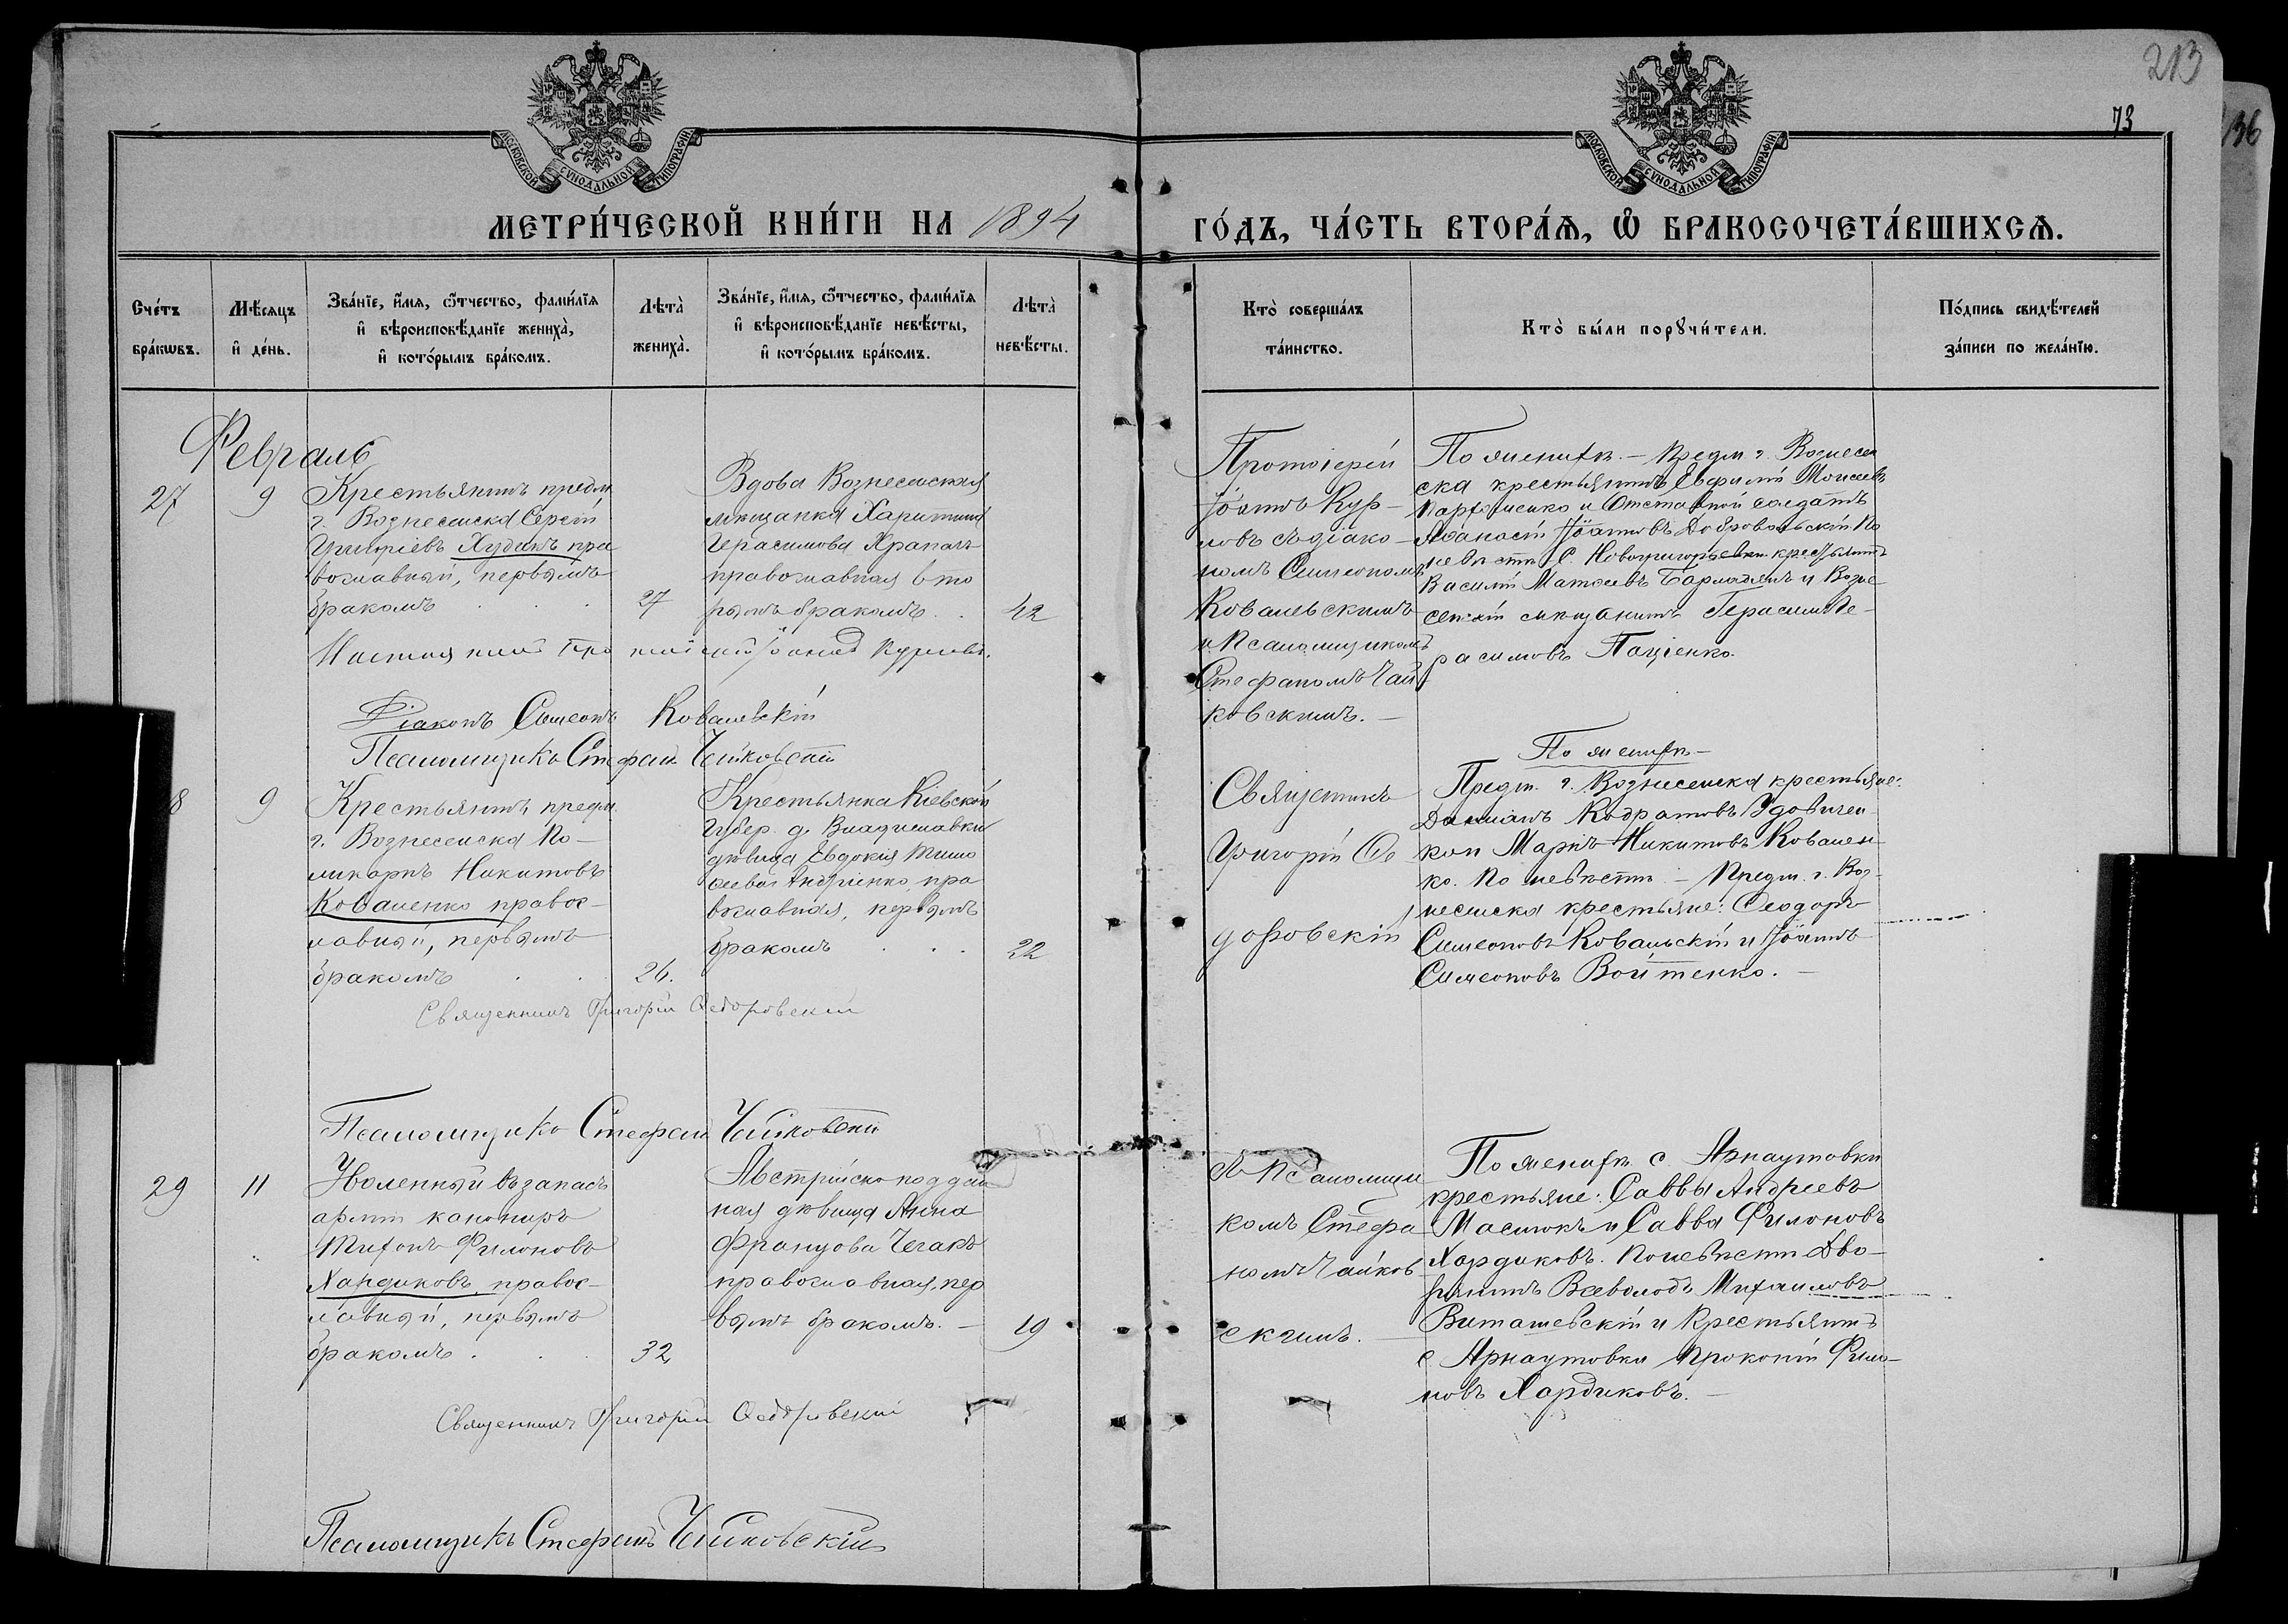 213
73
136
МОСКОВСКОЙ СѴНОДАЛЬНОЙ ТИПОГРАФІИ
МОСКОВСКОЙ СѴНОДАЛЬНОЙ ТИПОГРАФІИ
МЕТРИ́ЧЕСКОЙ КНИ́ГИ НА 1894
ГО́ДЪ, ЧА́СТЬ ВТОРА́Ѧ, Ѡ҆ БРАКОСОЧЕТА́ВШИХСѦ.
Сче́тъ
бра́кѡвъ.
Мѣ́сѧцъ
и҆ де́нь.
Зва́нїе, и҆́мѧ, ѻ҆́тчество, фами́лїѧ
и҆ вѣроисповѣ́данїе жениха̀,
и҆ кото́рымъ бра́комъ.
Лѣта̀
жениха̀.
Зва́нїе, и҆́мѧ, ѻ҆́тчество, фами́лїѧ
и҆ вѣроисповѣ́данїе невѣ́сты,
и҆ кото́рымъ бра́комъ.
Лѣта̀
невѣ́сты.
Кто̀ соверша́лъ
та́инство.
Кто̀ бы́ли порꙋчи́тели.
По́дпись свидѣ́телей
за́писи по жела́нїю.
Февраль
27
9
Крестьянинъ предм
г. Вознесенска Сергій
Григоріевъ Худинъ пра
вославный, первымъ
бракомъ . . .
27
Вдова Вознесенская
мѣщанка Харитина
Герасимова Храпачъ
православная вто
рымъ бракомъ . .
42
Протоіерей
Іоаннъ Кур-
ловъ съ діако-
номъ Симеономъ
Ковалевскимъ
и Псаломщикомъ
Стефаномъ Чай
ковскимъ. -
По женихѣ. - Предм. г. Вознесен
ска крестьянинъ Евфимій Моисеевъ
Парфоменко и Отставной солдатъ
Аѳанасій Іоанновъ Добровольскій По
невѣстѣ С. Новогригорьевки крестьянинъ
Василій Матѳеевъ и Возне
сенскій мѣщанинъ Герасимъ Ге-
расимовъ Паціенко.
Іоаннъ Курловъ.
Діаконъ Симеонъ Ковалевскій
Псаломщикъ Стефанъ Чайковскій
8
9
Крестьянинъ предм.
г. Вознесенска По-
ликарпъ Никитовъ
Коваленко правос-
лавный, первымъ
бракомъ . .
26.
Крестьянка Кіевской
Губер. д. Владиславки
дѣвица Евдокія Тимо
ѳеева Андріенко, пра
вославная, первымъ
бракомъ . . .
22
Священникъ
Григорій Ѳе
доровскій
По женихѣ -
Предм. г. Вознесенска крестьяне:
Даміанъ Кодратовъ Удовичен
ко и Маркъ Никитовъ Ковален-
ко. По невѣстѣ - Предм. г. Воз-
несенска крестьяне: Ѳеодоръ
Симеоновъ Ковальскій и Іоаннъ
Симеоновъ Войтенко. -
Священникъ Григорій Ѳедоровскій
Псаломщикъ Стефанъ Чайковскій
29
11
Уволенный въ запасъ
арміи канониръ
Тихонъ Филоновъ
Хандиковъ, правос-
лавный, первымъ
бракомъ . . .
32
Австрійско поддан
ная дѣвица Анна
Францова Чегакъ
православная, пер
вымъ бракомъ. -
19
Псаломщи
комъ Стефа
номъ Чайков
скимъ.
По женихѣ с Арнаутовки
крестьяне: Саввы Андреевъ
Маслюкъ и Савва Филоновъ
Хардиковъ. По невѣстѣ Дво-
рянинъ Всеволодъ Михаиловъ
Виташевскій и Крестьянинъ
с Арнаутовки Прокопій Фило-
новъ Хардиковъ. -
Священникъ Григорій Ѳедоровскій
Псаломщикъ Стефанъ Чайковскій